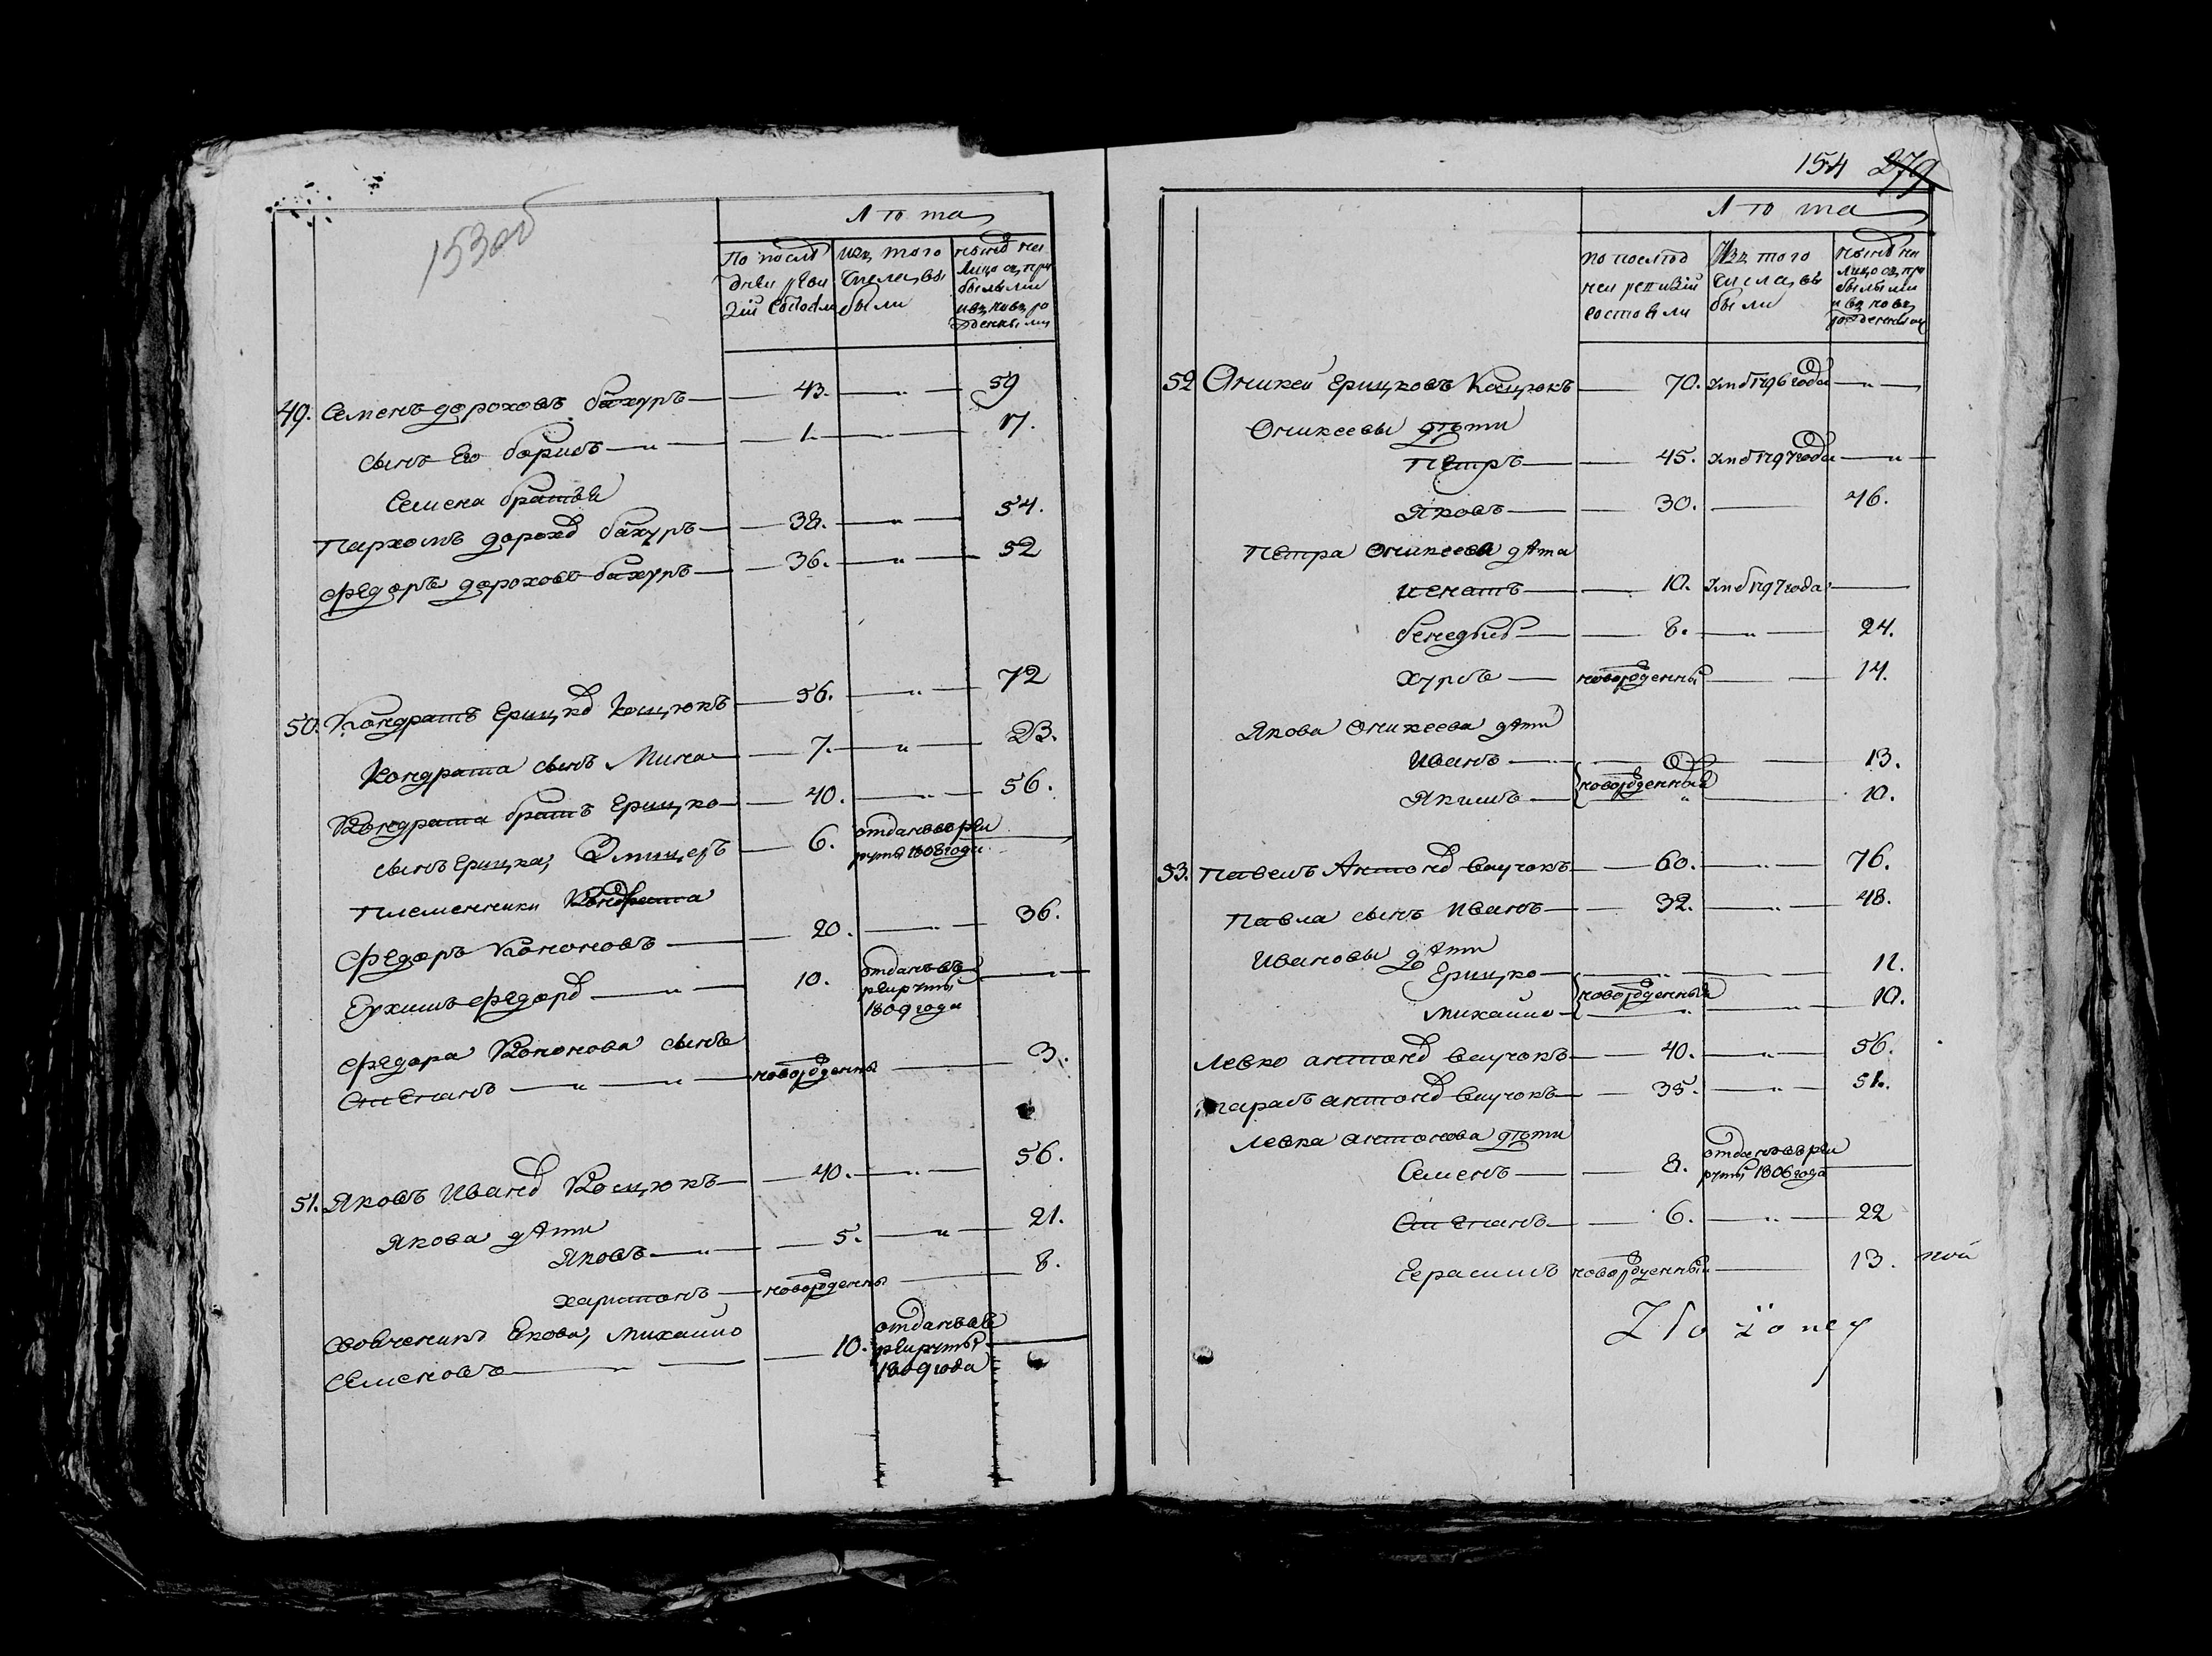 153 об
Лѣта
По послѣ
дней реви
зій состоял
изъ того
числа вы
были
нынѣ на
лицо съ при
былыми
и въ новъ ро
жденными
49. Семенъ дороховъ бахуръ — 43. — " — 59
сынъ Его борисъ — " — 1. — " — 17.
Семена братья
Пархомъ дорохо бахуръ — 38. — " — 54.
Федоръ дороховъ бахуръ — 36. — " — 52
50. Кондратъ Грицко Кощюкъ — 56. — " — 72
Кондрата сынъ Мина — 7. — " — 23.
Кондрата братъ Грицко — 40. — " — 56.
сынъ Грицка, — 6. отданъ въ рек
руты 1808 года
Племенники Кондрата
Федоръ Кононовъ — 20. — " — 36.
Евхимъ Федоро — " — 10. отданъ въ
рекруты — " —
1809 года
Федора Кононова сынъ
Степанъ — " — " — новорожденны — 3.
51. Яковъ Ивано Кощюкъ — 40. — " — 56.
Якова дѣти
Яковъ — " — 5. — " — 21.
Харитонъ — новорожденны — 8.
Якова, Михайло
Семеновъ — 10. отданъ въ
рекруты
1809 года
154 279
Лѣта
по послѣд
ней ревизіи
состояли
Изъ того
числа вы
были
нынѣ на
лицо съ при
былыми
и въ новъ
рожденными
52 Оникей Грицковъ Кощюкъ — 70. Умѣ 1796 года — " —
Оникеевы дѣти
Петръ — 45. Умѣ 1797 года — " —
Яковъ — 30. — 46.
Петра Оникеева дѣти
Игнатъ — 10. Умѣ 1797 года —
бенедикт — 8. — " — 24.
— новорожденный — 14.
Якова Оникеева дѣти
Иванъ — 13.
новорожденный
Якимъ — " — 10.
53. Павелъ Антоно Ваучокъ — 60. — " — 76.
Павла сынъ Иванъ — 32. — " — 48.
Ивановы дѣти
Грицко — " — 12.
новорожденный
Михайло — " — 10.
Левко антоно Ваучокъ — 40. — " — 56.
Тарасъ антоно Ваучокъ — 35. — " — 51.
Левка антонова дѣти
Семенъ — 8. отданъ въ рек
руты 1806 года
Степанъ — 6. — " — 22
Герасимъ новорожденный — 13.